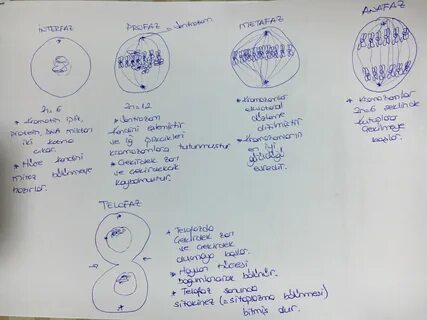 İNTERFAZ
2n = 6
* Kromatin iplik,
protein, DNA miktarı
iki katına
çıkar.
* Hücre kendini
mitoz bölünmeye
hazırlar.
PROFAZ
Sentrozom
2n = 12
* Sentrozom
kendini eşlemiştir
ve iğ iplikcikleri
kromozomlara tutunmuştur
* Çekirdek zarı
ve çekirdekcik
kaybolmuştur.
METAFAZ
* Kromozomlar
ekvatoral
düzleme
dizilmiştir.
* Kromozomların
en iyi
görüldüğü
evredir.
ANAFAZ
* Kromozomlar
2n=6 şeklinde
kutuplara
çekilmeye
başlar.
TELOFAZ
* Telofazda
çekirdek zarı
ve çekirdek
oluşmaya başlar.
* Hayvan hücresi
boğumlanarak bölünür.
* Telofaz sonunda
sitokinez (= sitoplazma bölünmesi)
bitmiş olur.